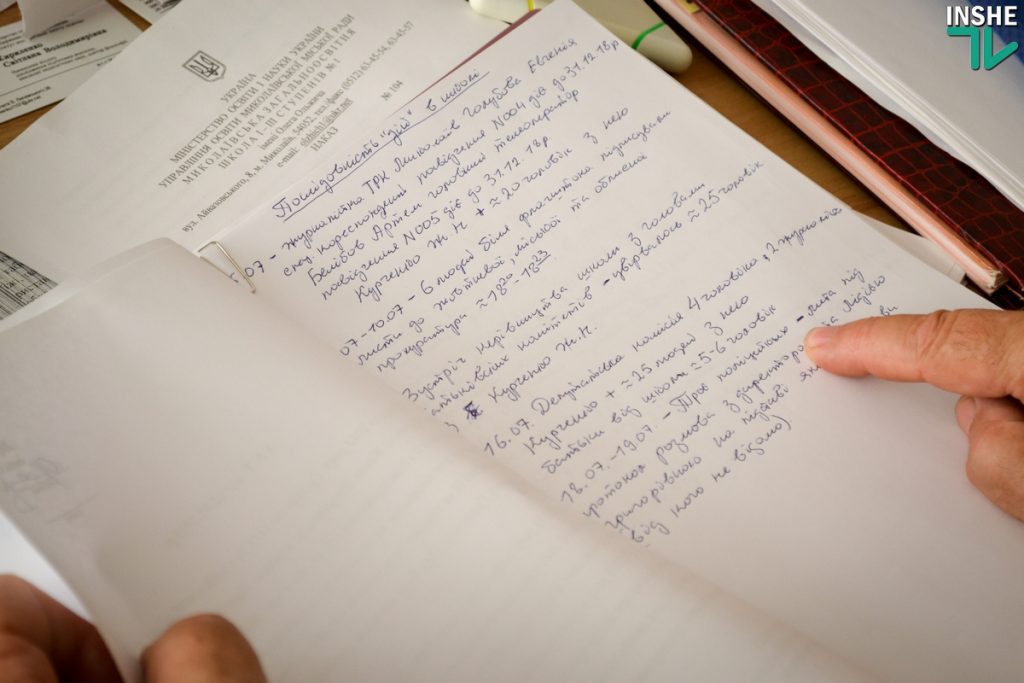 INSHE
TV
Світлана Володимирівна
УКРАЇНА
МІНІСТЕРСТВО ОСВІТИ І НАУКИ УКРАЇНИ
УПРАВЛІННЯ ОСВІТИ МИКОЛАЇВСЬКОЇ МІСЬКОЇ РАДИ
МИКОЛАЇВСЬКА ЗАГАЛЬНООСВІТНЯ
ШКОЛА І-ІІІ СТУПЕНІВ №1
імені Олега Ольжича
вул. Айвазовського, 8, м. Миколаїв, 54052, тел./факс (0512) 63-45-54, 63-45-57
e-mail:
НАКАЗ
№ 104
Послідовність "дій" в школі
07 - журналістка ТРК Миколаїв Голубова Евгенія
спец. кореспондент повідчення №004 діє до 31.12.18р
Артем головний телеоператор
повідчення №005 діє до 31.12.18р
Курченко Ж.Н + ≈ 20 головік з нею
07-10.07 - 6 людей біля підписували
листи до жовтневої, міської та обласної
прокуратура ≈ 18²⁰ - 18²³
Зустріч керівництва школи з головами
батьківських комітетів - ≈ 25 головік
Курченко Ж.Н.
16.07. Депутатська комісія 4 головіка, 2 журналіста
Курченко + ≈ 25 людей з нею
батьки від школи ≈ 5-6 головік
18.07. - 19.07. - Троє поліцейських - під
протокол розмова з директором Лідією
Григорівною на підставі
від кого не відомо)